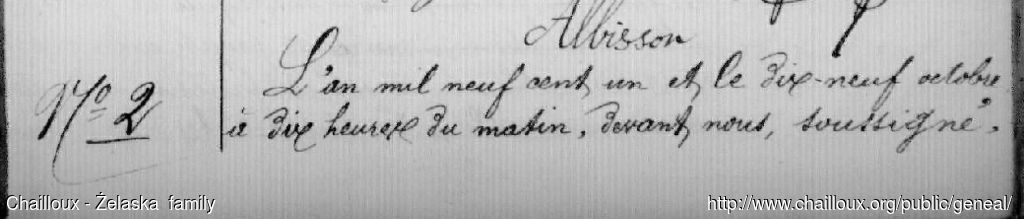 Albisson
L'an mil neuf cent un et le dix-neuf octobre
No 2
à dix heures du matin, devant nous, soussigné,
Chailloux - Żelaska family
http://www.chailloux.org/public/geneal/